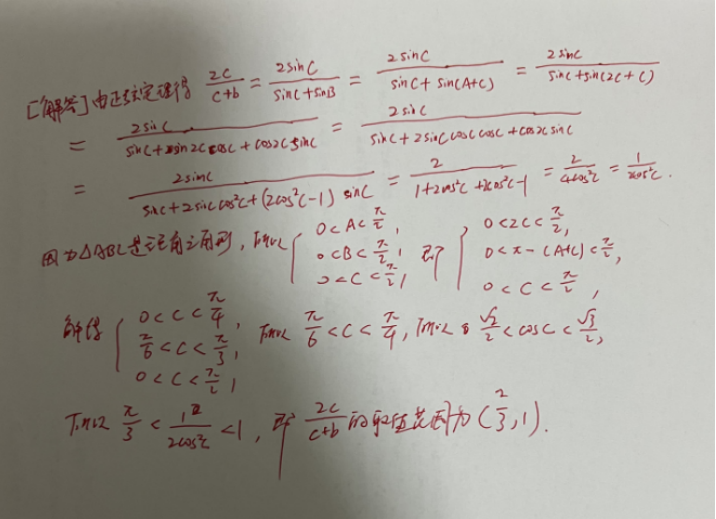 [解答]由正弦定理得 2c/(c+b) = 2sinC/(sinC+sinB) = 2sinC/(sinC+sin(A+C)) = 2sinC/(sinC+sin(2C+C))
= 2sinC/(sinC+sin2C cosC+cos2C sinC) = 2sinC/(sinC+2sinC cosC cosC+cos2C sinC)
= 2sinC/(sinC+2sinC cos²C+(2cos²C-1) sinC) = 2/(1+2cos²C+2cos²C-1) = 2/(4cos²C) = 1/(2cos²C).
因为△ABC是锐角三角形,所以 { 0<A<π/2, 0<B<π/2, 0<C<π/2, 即 { 0<2C<π/2, 0<π-(A+C)<π/2, 0<C<π/2,
解得 { 0<C<π/4, π/6<C<π/3, 0<C<π/2, 所以 π/6<C<π/4, 所以 √2/2<cosC<√3/2,
所以 <1/(2cos²C)<1, 即 2c/(c+b) 的取值范围为(2/3,1).